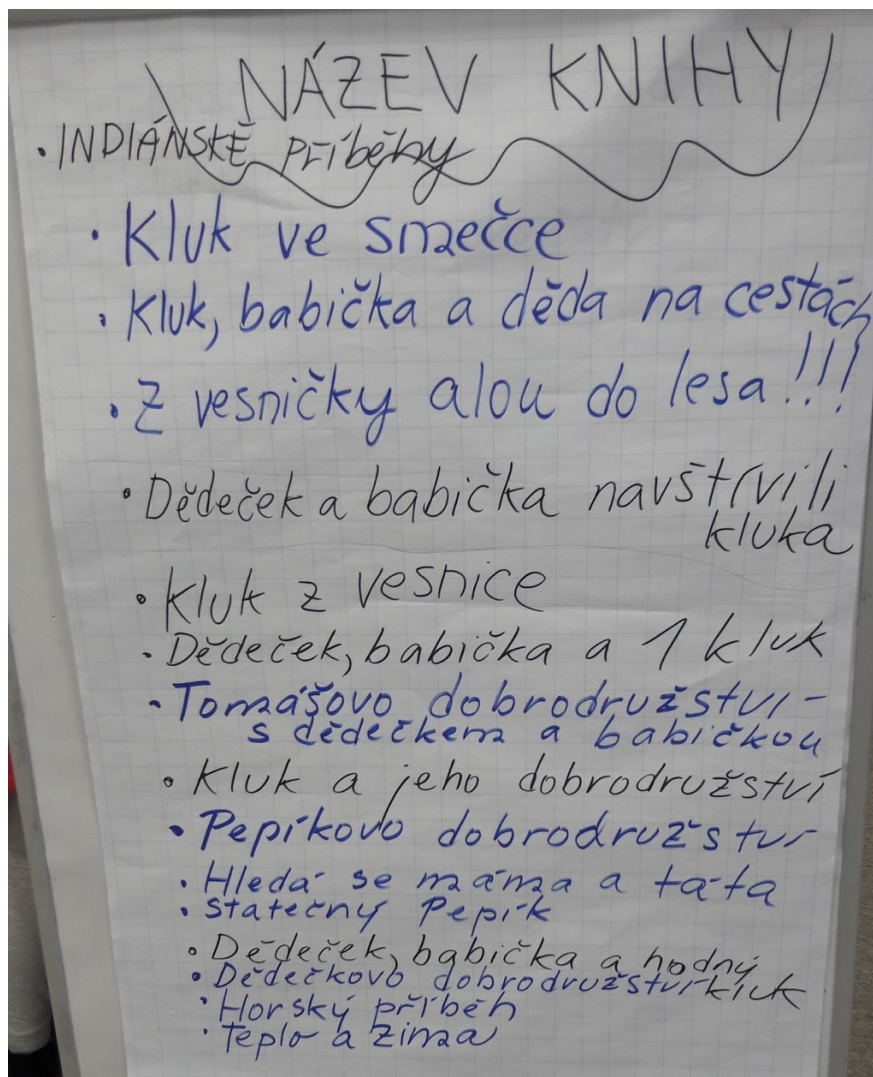 NÁZEV KNIHY
• INDIÁNSKÉ příběhy
• Kluk ve smečce
• Kluk, babička a děda na cestách
• Z vesničky alou do lesa!!!
• Dědeček a babička navštívili
kluka
• Kluk z vesnice
• Dědeček, babička a 1 kluk
• Tomášovo dobrodružství
s dědečkem a babičkou
• Kluk a jeho dobrodružství
• Pepíkovo dobrodružství
• Hledá se máma a táta
• Statečný Pepík
• Dědeček, babička a hodný
kluk
• Dědečkovo dobrodružství
• Horský příběh
• Teplo a zima